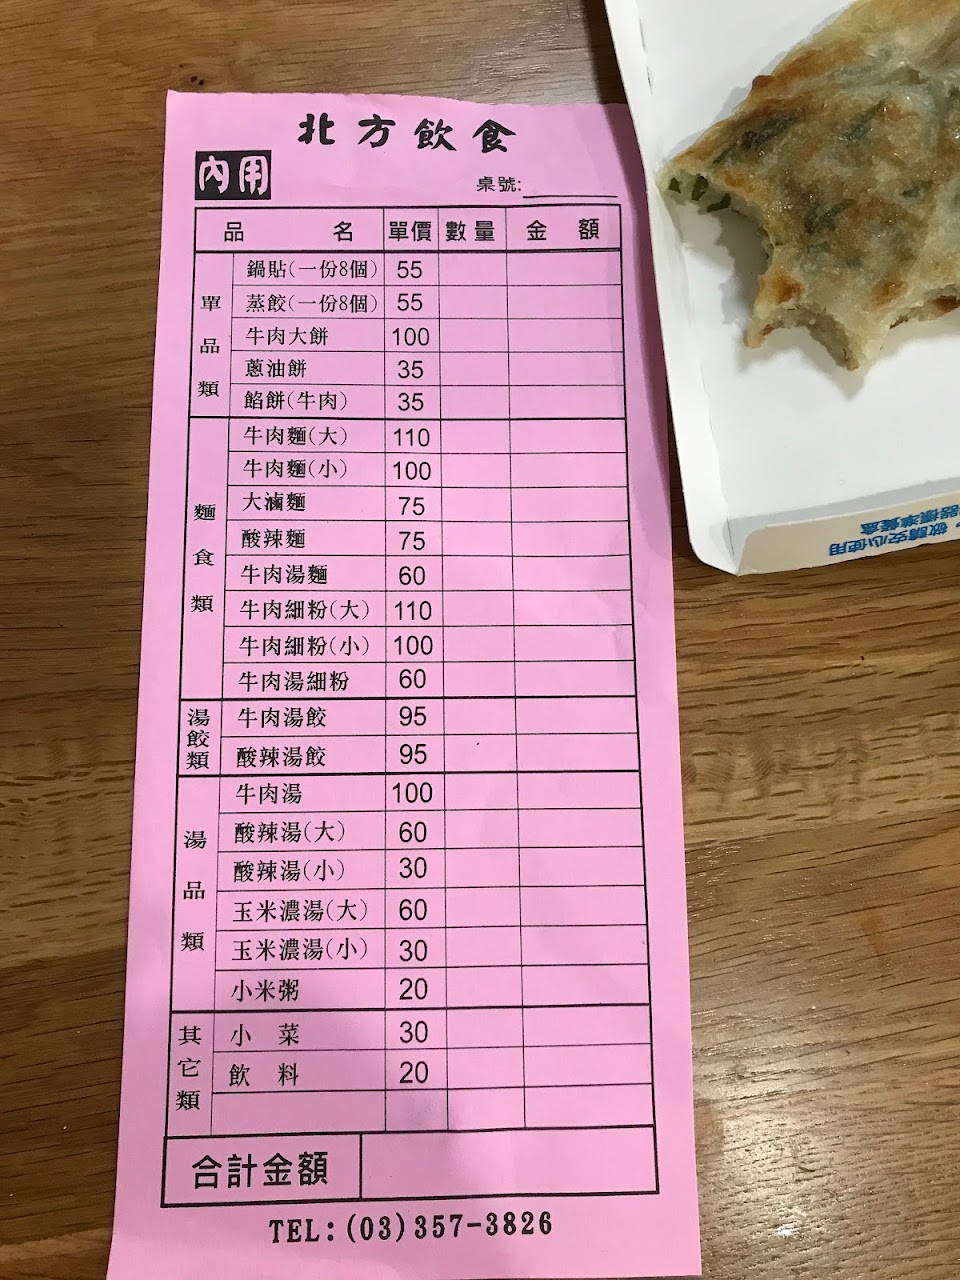 北方飲食
內用
桌號:
品名 單價 數量 金額
單品類
鍋貼(一份8個) 55
蒸餃(一份8個) 55
牛肉大餅 100
蔥油餅 35
餡餅(牛肉) 35
麵食類
牛肉麵(大) 110
牛肉麵(小) 100
大滷麵 75
酸辣麵 75
牛肉湯麵 60
牛肉細粉(大) 110
牛肉細粉(小) 100
牛肉湯細粉 60
湯餃類
牛肉湯餃 95
酸辣湯餃 95
湯品類
牛肉湯 100
酸辣湯(大) 60
酸辣湯(小) 30
玉米濃湯(大) 60
玉米濃湯(小) 30
小米粥 20
其它類
小菜 30
飲料 20
合計金額
TEL:(03)357-3826
敬請安心使用
器標準餐盒